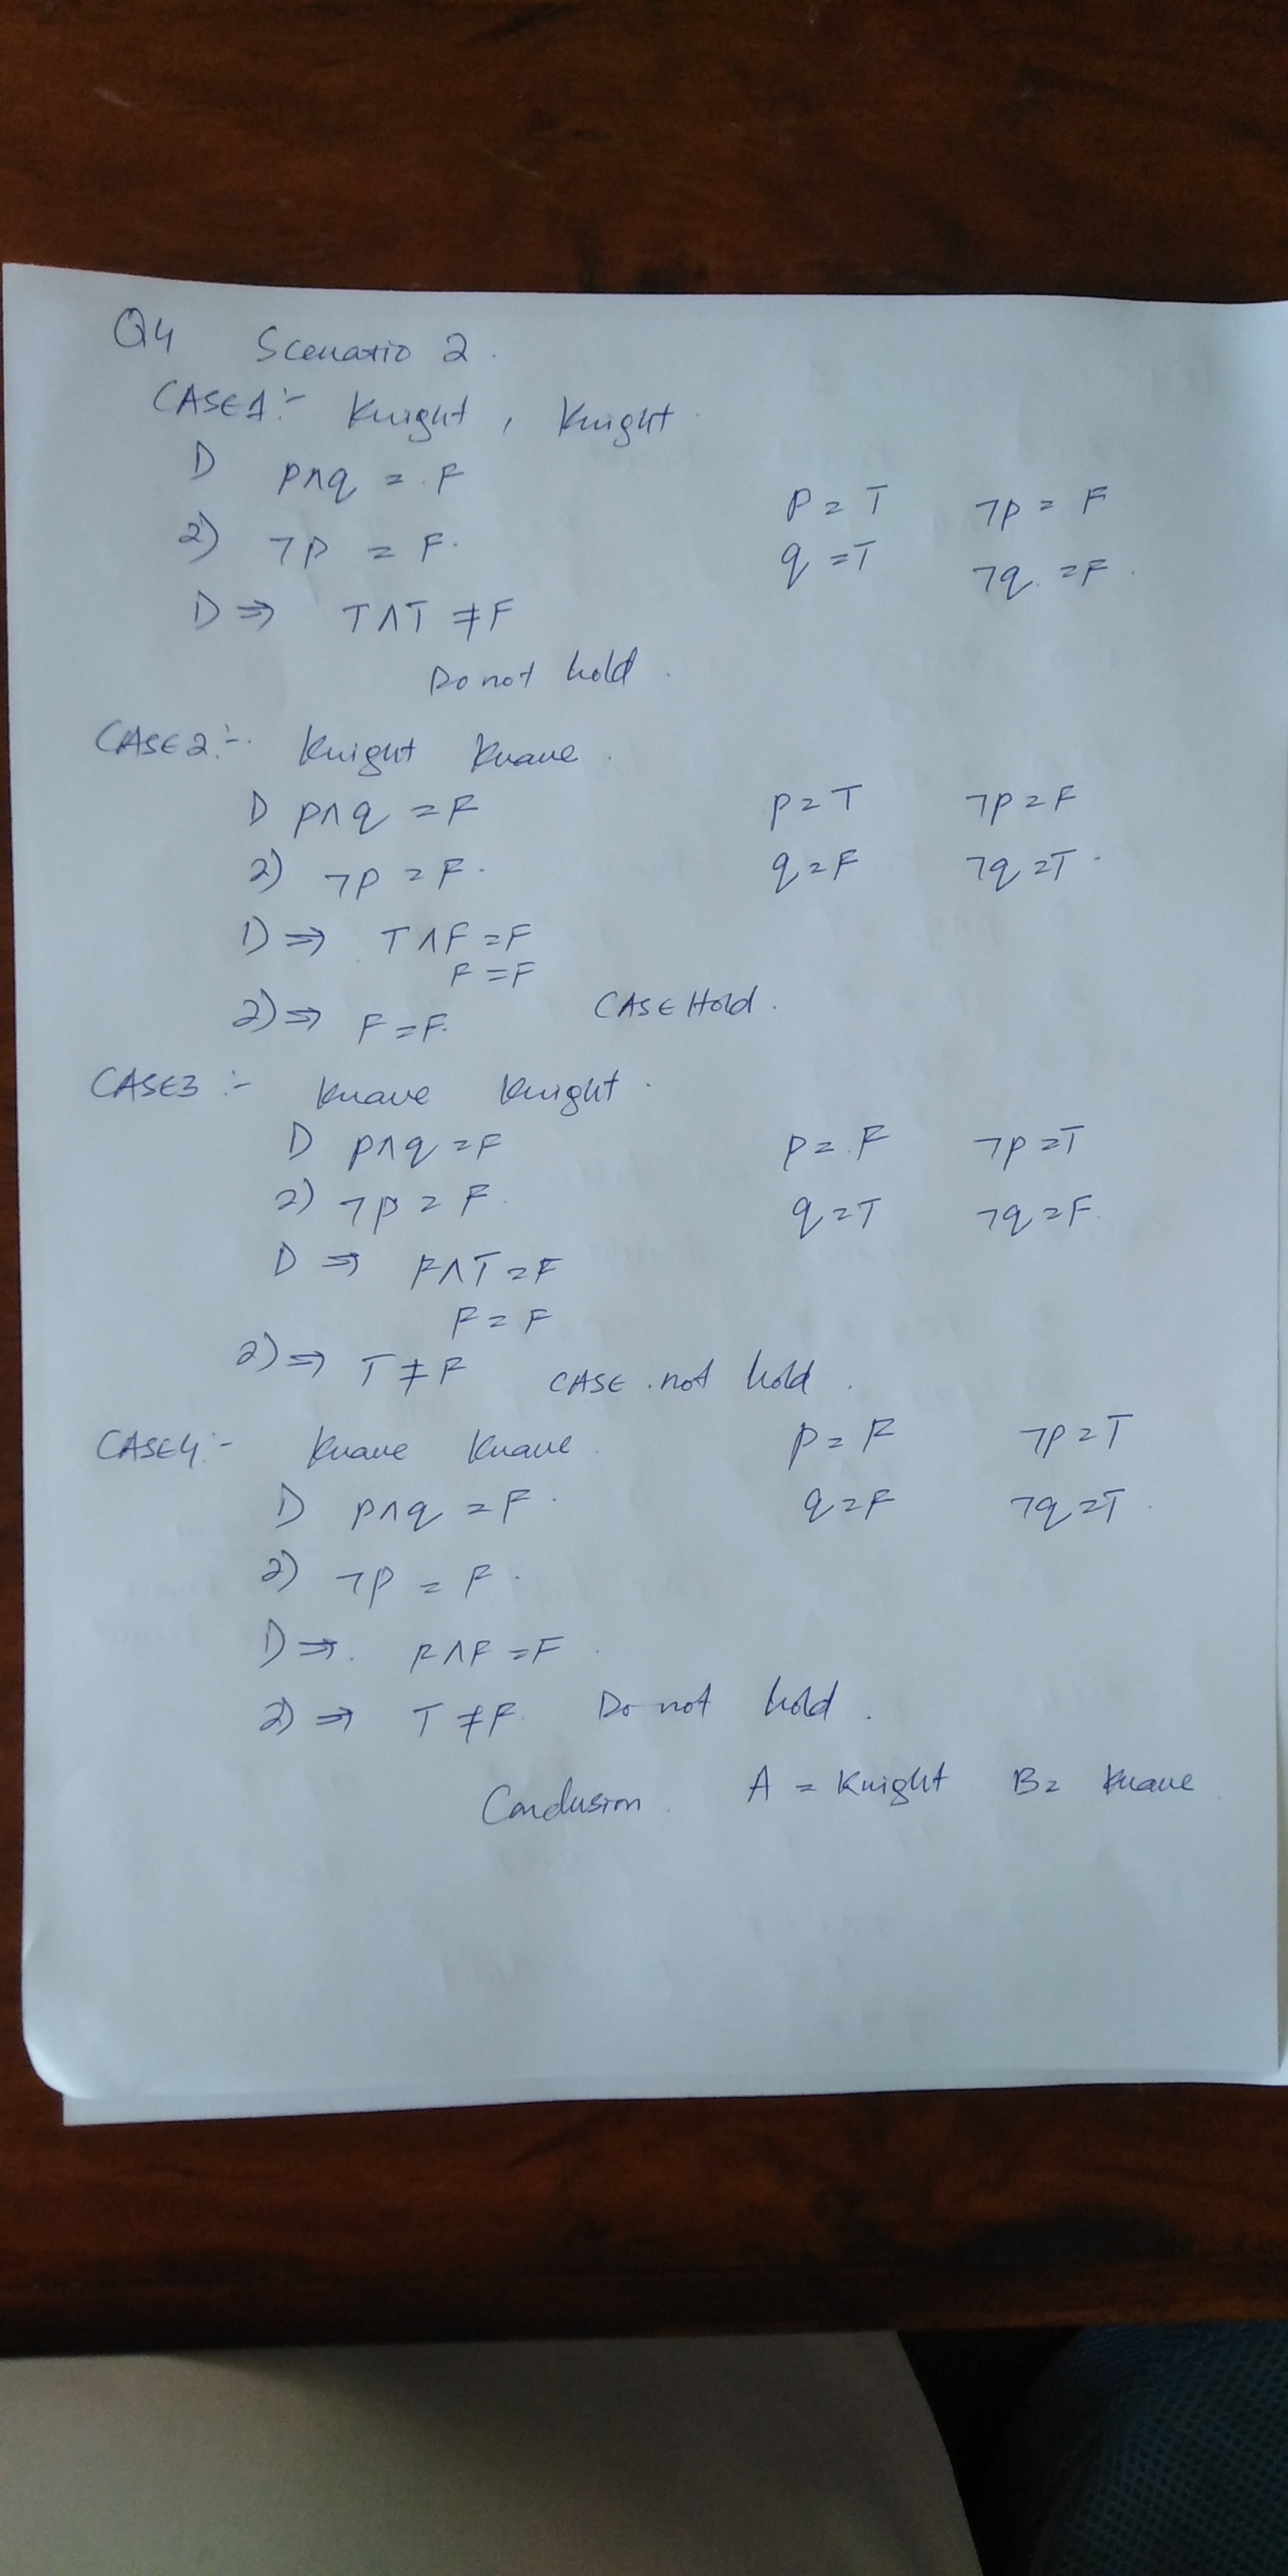 Q4 Scenario 2.
CASE1:- Knight, Knight.
1) p∧q = F
p = T ¬p = F
2) ¬p = F.
q = T ¬q = F.
1) ⇒ T∧T ≠ F
Do not hold.
CASE2:- Knight Knave.
1) p∧q = F p = T ¬p = F
2) ¬p = F. q = F ¬q = T.
1) ⇒ T∧F = F
F = F
2) ⇒ F = F. CASE Hold.
CASE3:- Knave Knight.
1) p∧q = F p = F ¬p = T
2) ¬p = F. q = T ¬q = F.
1) ⇒ F∧T = F
F = F
2) ⇒ T ≠ F CASE not hold.
CASE4:- Knave Knave. p = F ¬p = T
1) p∧q = F. q = F ¬q = T.
2) ¬p = F.
1) ⇒. F∧F = F.
2) ⇒ T ≠ F. Do not hold.
Conclusion. A = Knight B = Knave.